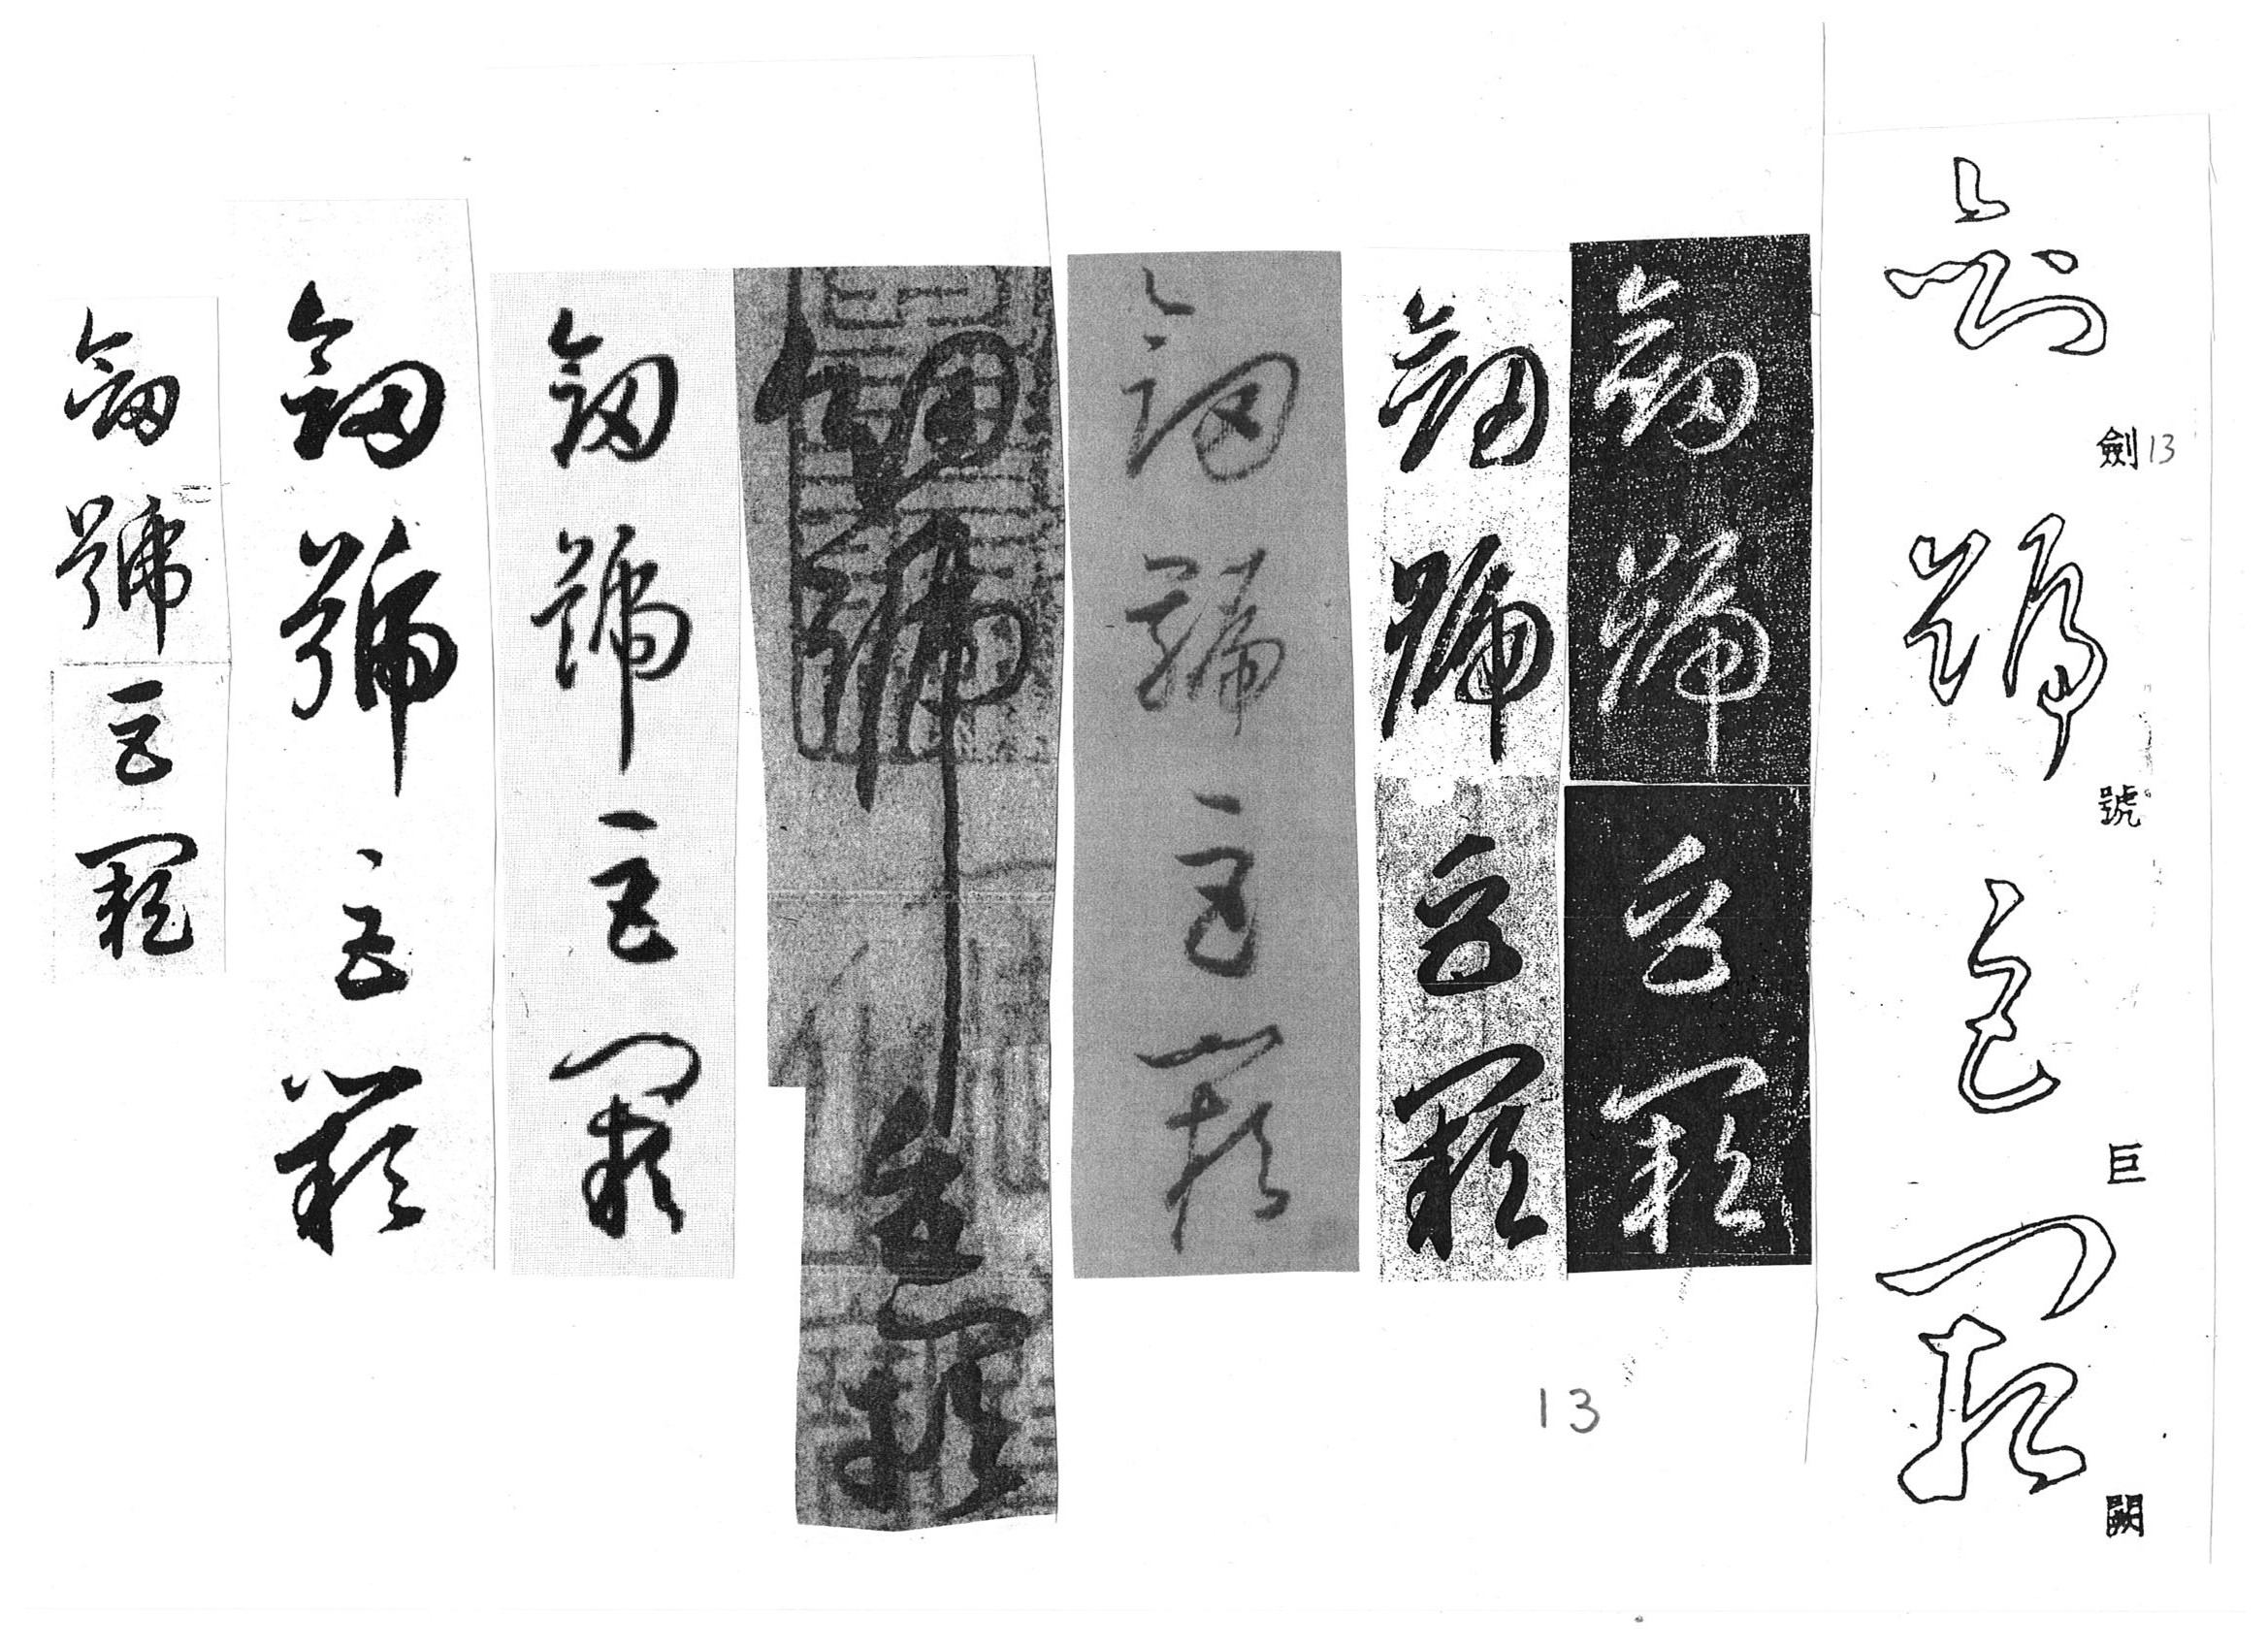 劍號巨闕
劍 13
號
巨
闕
劍號巨闕
劍號巨闕
劍號巨闕
劍號巨闕
劍號巨闕
劍號巨闕
劍號巨闕
13